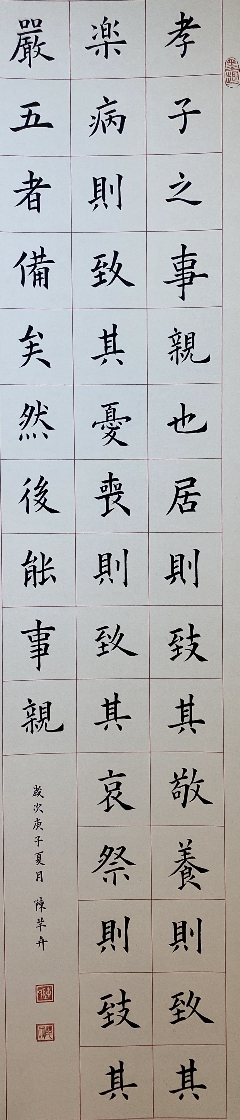 孝子之事親也居則致其敬養則致其
楽病則致其憂喪則致其哀祭則致其
嚴五者備矣然後能事親
歲次庚子夏月 陳苹卉